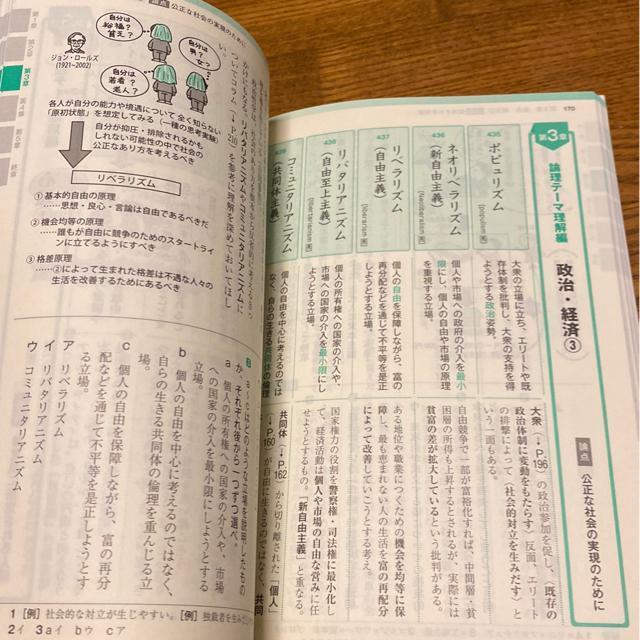 170
第3章
論理テーマ理解編
政治・経済③
論点
公正な社会の実現のために
435
ポピュリズム
[populism 英]
大衆の立場に立ち、エリートや既
存体制を批判し、大衆の支持を得
ようとする政治姿勢。
大衆(→P.196)の政治参加を促し、〈既存の
政治体制に変動をもたらす〉反面、エリート
の排撃によって〈社会的対立を生みだす〉と
いう一面もある。
436
ネオリベラリズム
(新自由主義)
[Neoliberalism 英]
個人や市場への政府の介入を最小
限にし、個人の自由や市場の原理
を重視する立場。
自由競争で一部が富裕化すれば、中間層・貧
困層の所得も上昇するとされるが、実際には
貧富の差が拡大しているという批判がある。
437
リベラリズム
(自由主義)
[liberalism 英]
個人の自由を保障しながら、富の
再分配などを通じて不平等を是正
しようとする立場。
ある地位や職業につくための機会を均等に保
障し、最も恵まれない人の生活を富の再分配
によって改善していこうとする考え。
438
リバタリアニズム
(自由至上主義)
[libertarianism 英]
個人の所有権への国家の介入や、
市場への国家の介入を最小限にし
ようとする立場。
国家権力の役割を警察権・司法権に最小化し
て、経済活動は個人や市場の自由な営みに任
せようとするもの。「新自由主義」と重なる。
439
コミュニタリアニズム
(共同体主義)
個人の自由を中心に考えるのでは
なく、自らの生きる共同体の倫理
共同体(→P.162)から切り離された「個人」
(→P.160)が自由に生きるのではなく、共同
論点 公正な社会の実現のために
第1章
第2章
第3章
第4章
第5章
終章
ジョン・ロールズ
(1921~2002)
自分は
裕福?
貧乏?
自分は
男?
女?
自分は
若者?
老人?
各人が自分の能力や境遇について全く知らない
「原初状態」を想定してみる(一種の思考実験)
自分が抑圧・排除されるかも
しれない可能性の中で社会の
公正なあり方を考えるべき
リベラリズム
①基本的自由の原理
……思想・良心・言論は自由であるべきだ
②機会均等の原理
……誰もが自由に競争のためのスタートライ
ンに立てるようにすべき
③格差原理
……②によって生まれた格差は不遇な人々の
生活を改善するためにあるべき
ついてコラム(→P.210)を参考に理解を深めておいてほし
い。
a～cはどのような立場を説明したもの
か、それぞれ後から一つずつ選べ。
a 個人の所有権への国家の介入や、市場
への国家の介入を最小限にしようとする
立場。
b 個人の自由を中心に考えるのではなく、
自らの生きる共同体の倫理を重んじる立
場。
c 個人の自由を保障しながら、富の再分
配などを通じて不平等を是正しようとす
る立場。
ア リベラリズム
イ リバタリアニズム
ウ コミュニタリアニズム
1[例]社会的な対立が生じやすい。[例]独裁者を生み
2イ 3aイ bウ cア